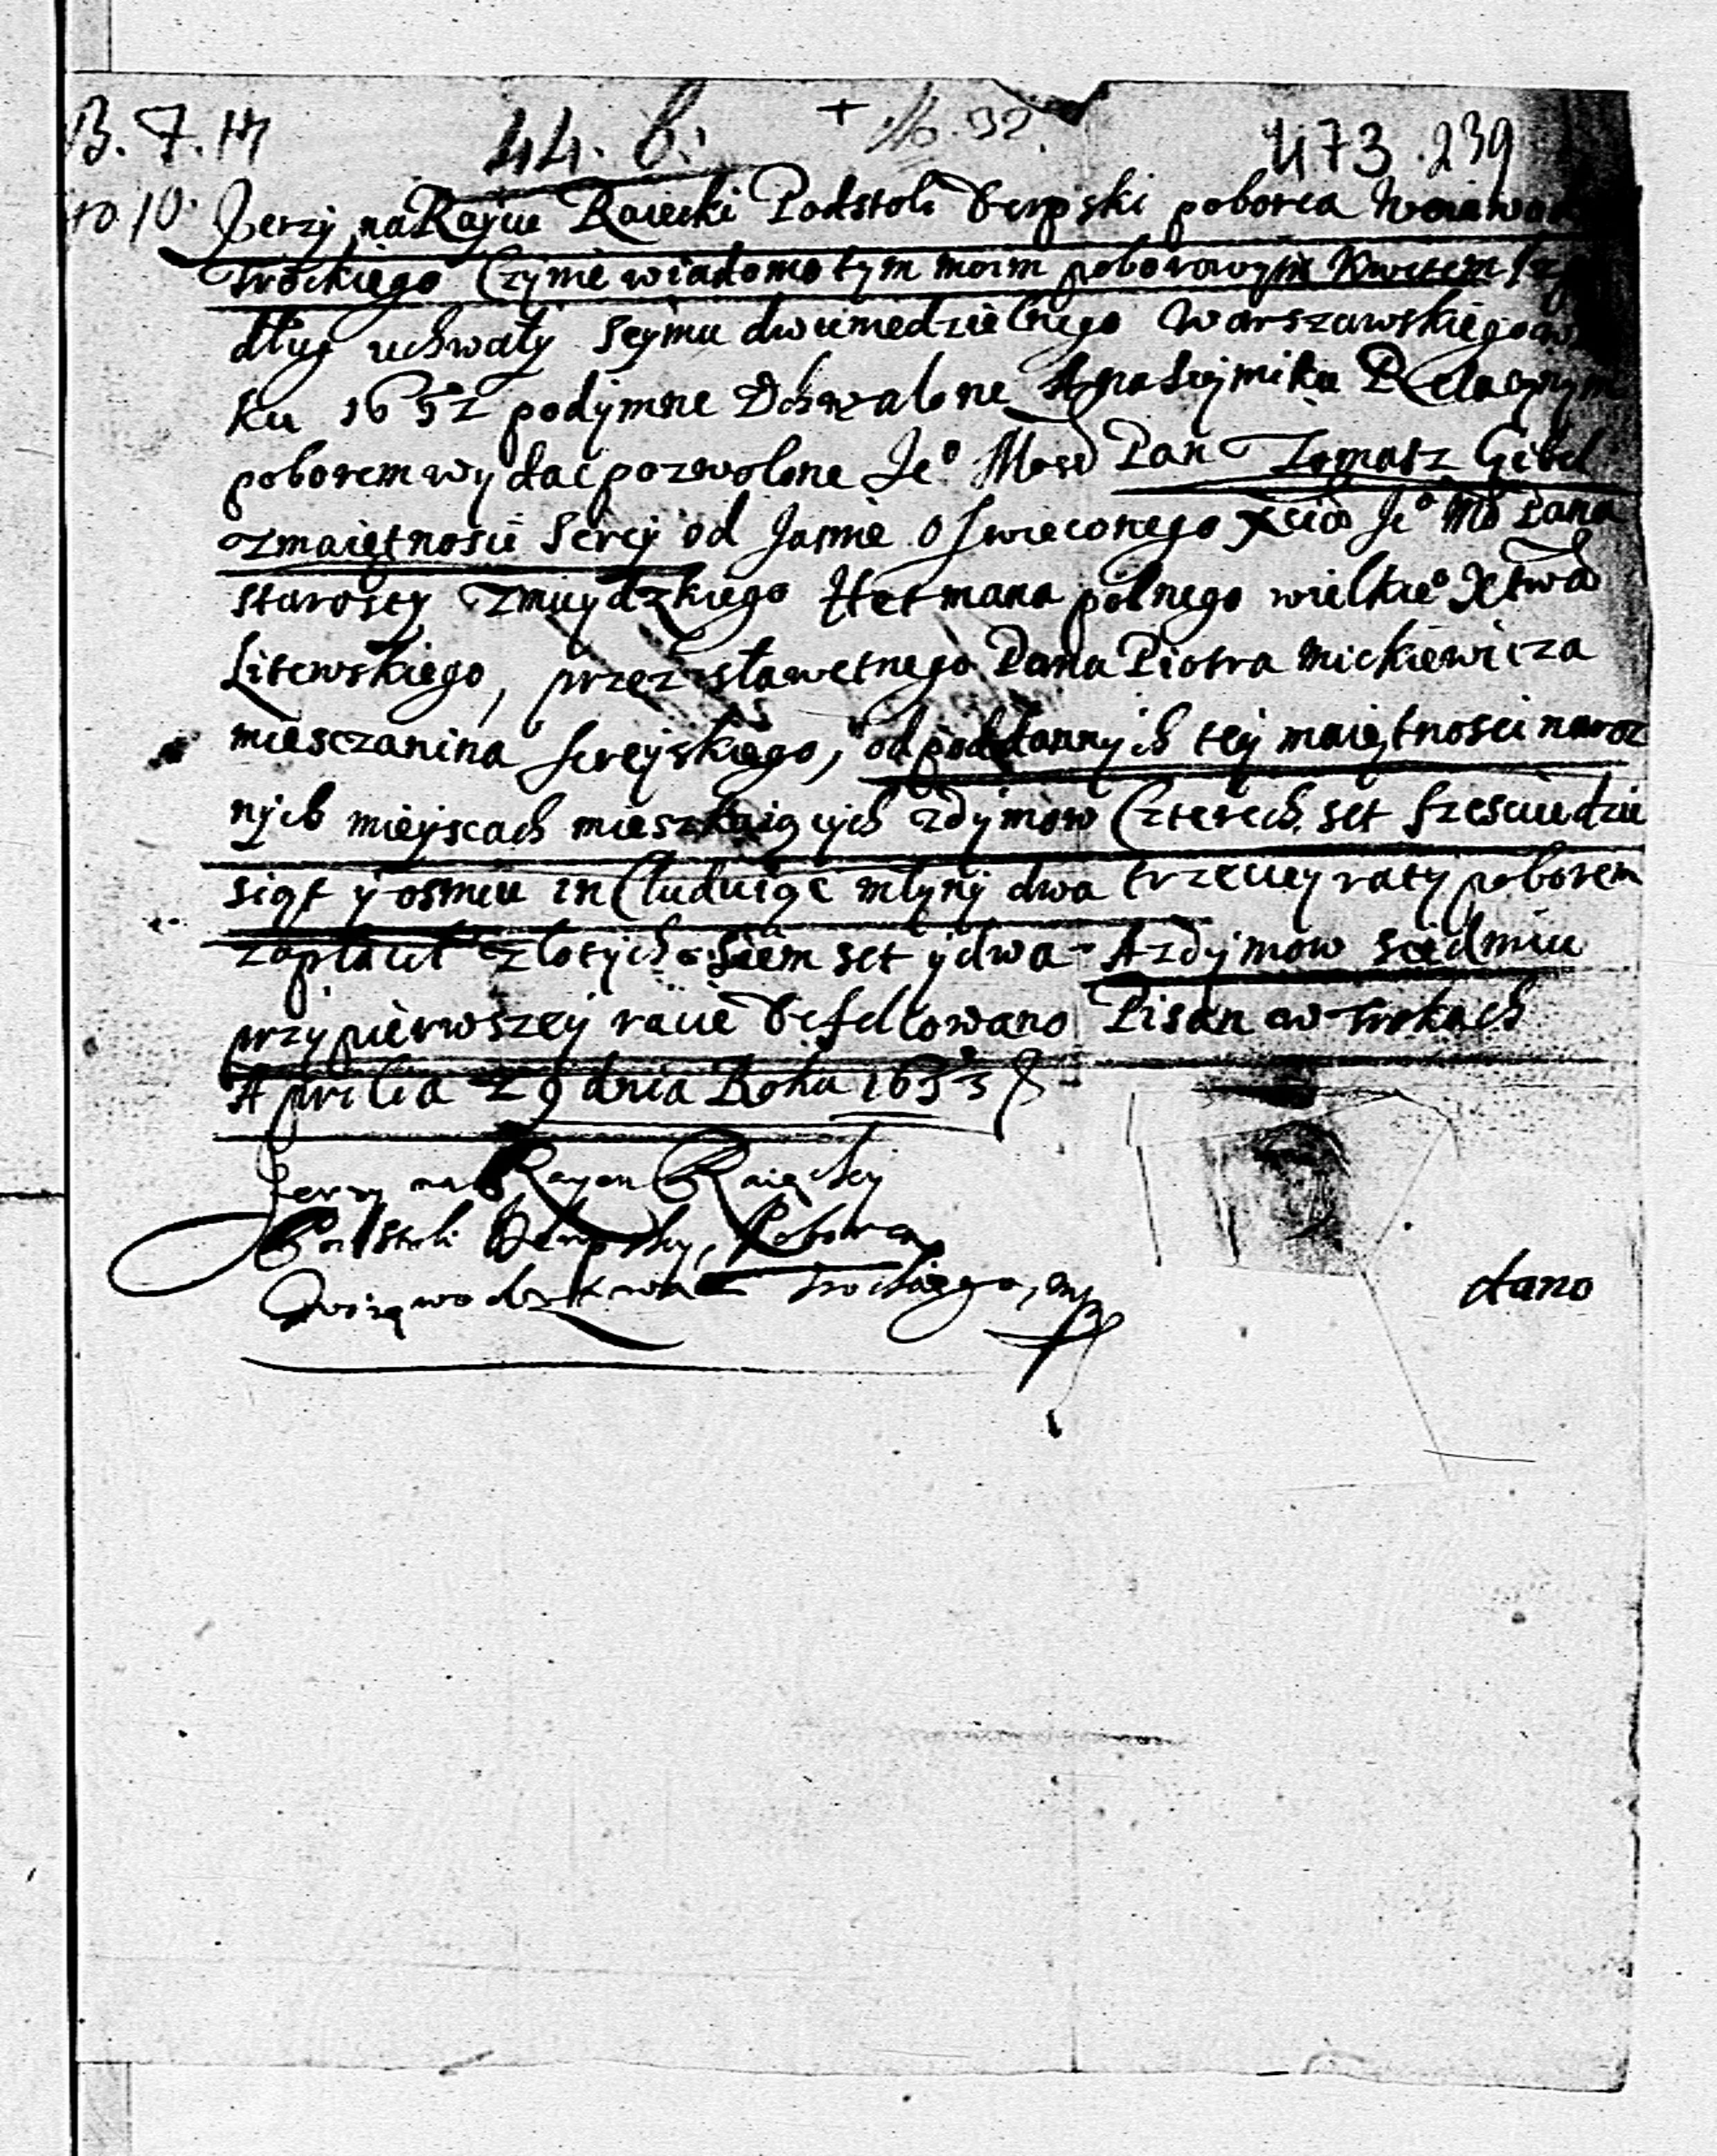 B. 7. 14
44. b. + No. 32. 473. 239
10. Jerzy na Rajcu Raiecki Podstoli Derpski poborca Woiewod
Trockiego Czynie wiadomo tym moim poborowym Kwitem Iz
dług uchwały Seymu dwuniedzielnego Warszawskiego w
ku 1652 podymne Uchwalone Anasieymiku Relacyinym
poborem wydac pozwolone Ie° Mosc Pan Tomasz Gibel
zmaiętnosci Serey od Jasnie Oswieconego Xcia Ie° Mo Pana
Starosty Zmuydzkiego Hetmana polnego wielkie° Xstwa
Litewskiego, przez sławetnego Pana Piotra Mickiewicza
mieszczanina Sereyskiego, od poddannych tey maiętnosci naroz
nych mieyscach mieszkaiących zdymow Czterech set szesciudzie
siąt y osmiu in Cluduiąc młyny dwa trzeciey raty poborem
zapłacił złotych siem set y dwa A zdymow siedmiu
przy pierwszey racie Defelkowano Pisan w Trokach
Aprilia 29 dnia Roku 1653
Jerzy na Raycu Raiecky
Podstoli Derpsky, Poborca
Woiewodztwa Trockiego, mp
dano